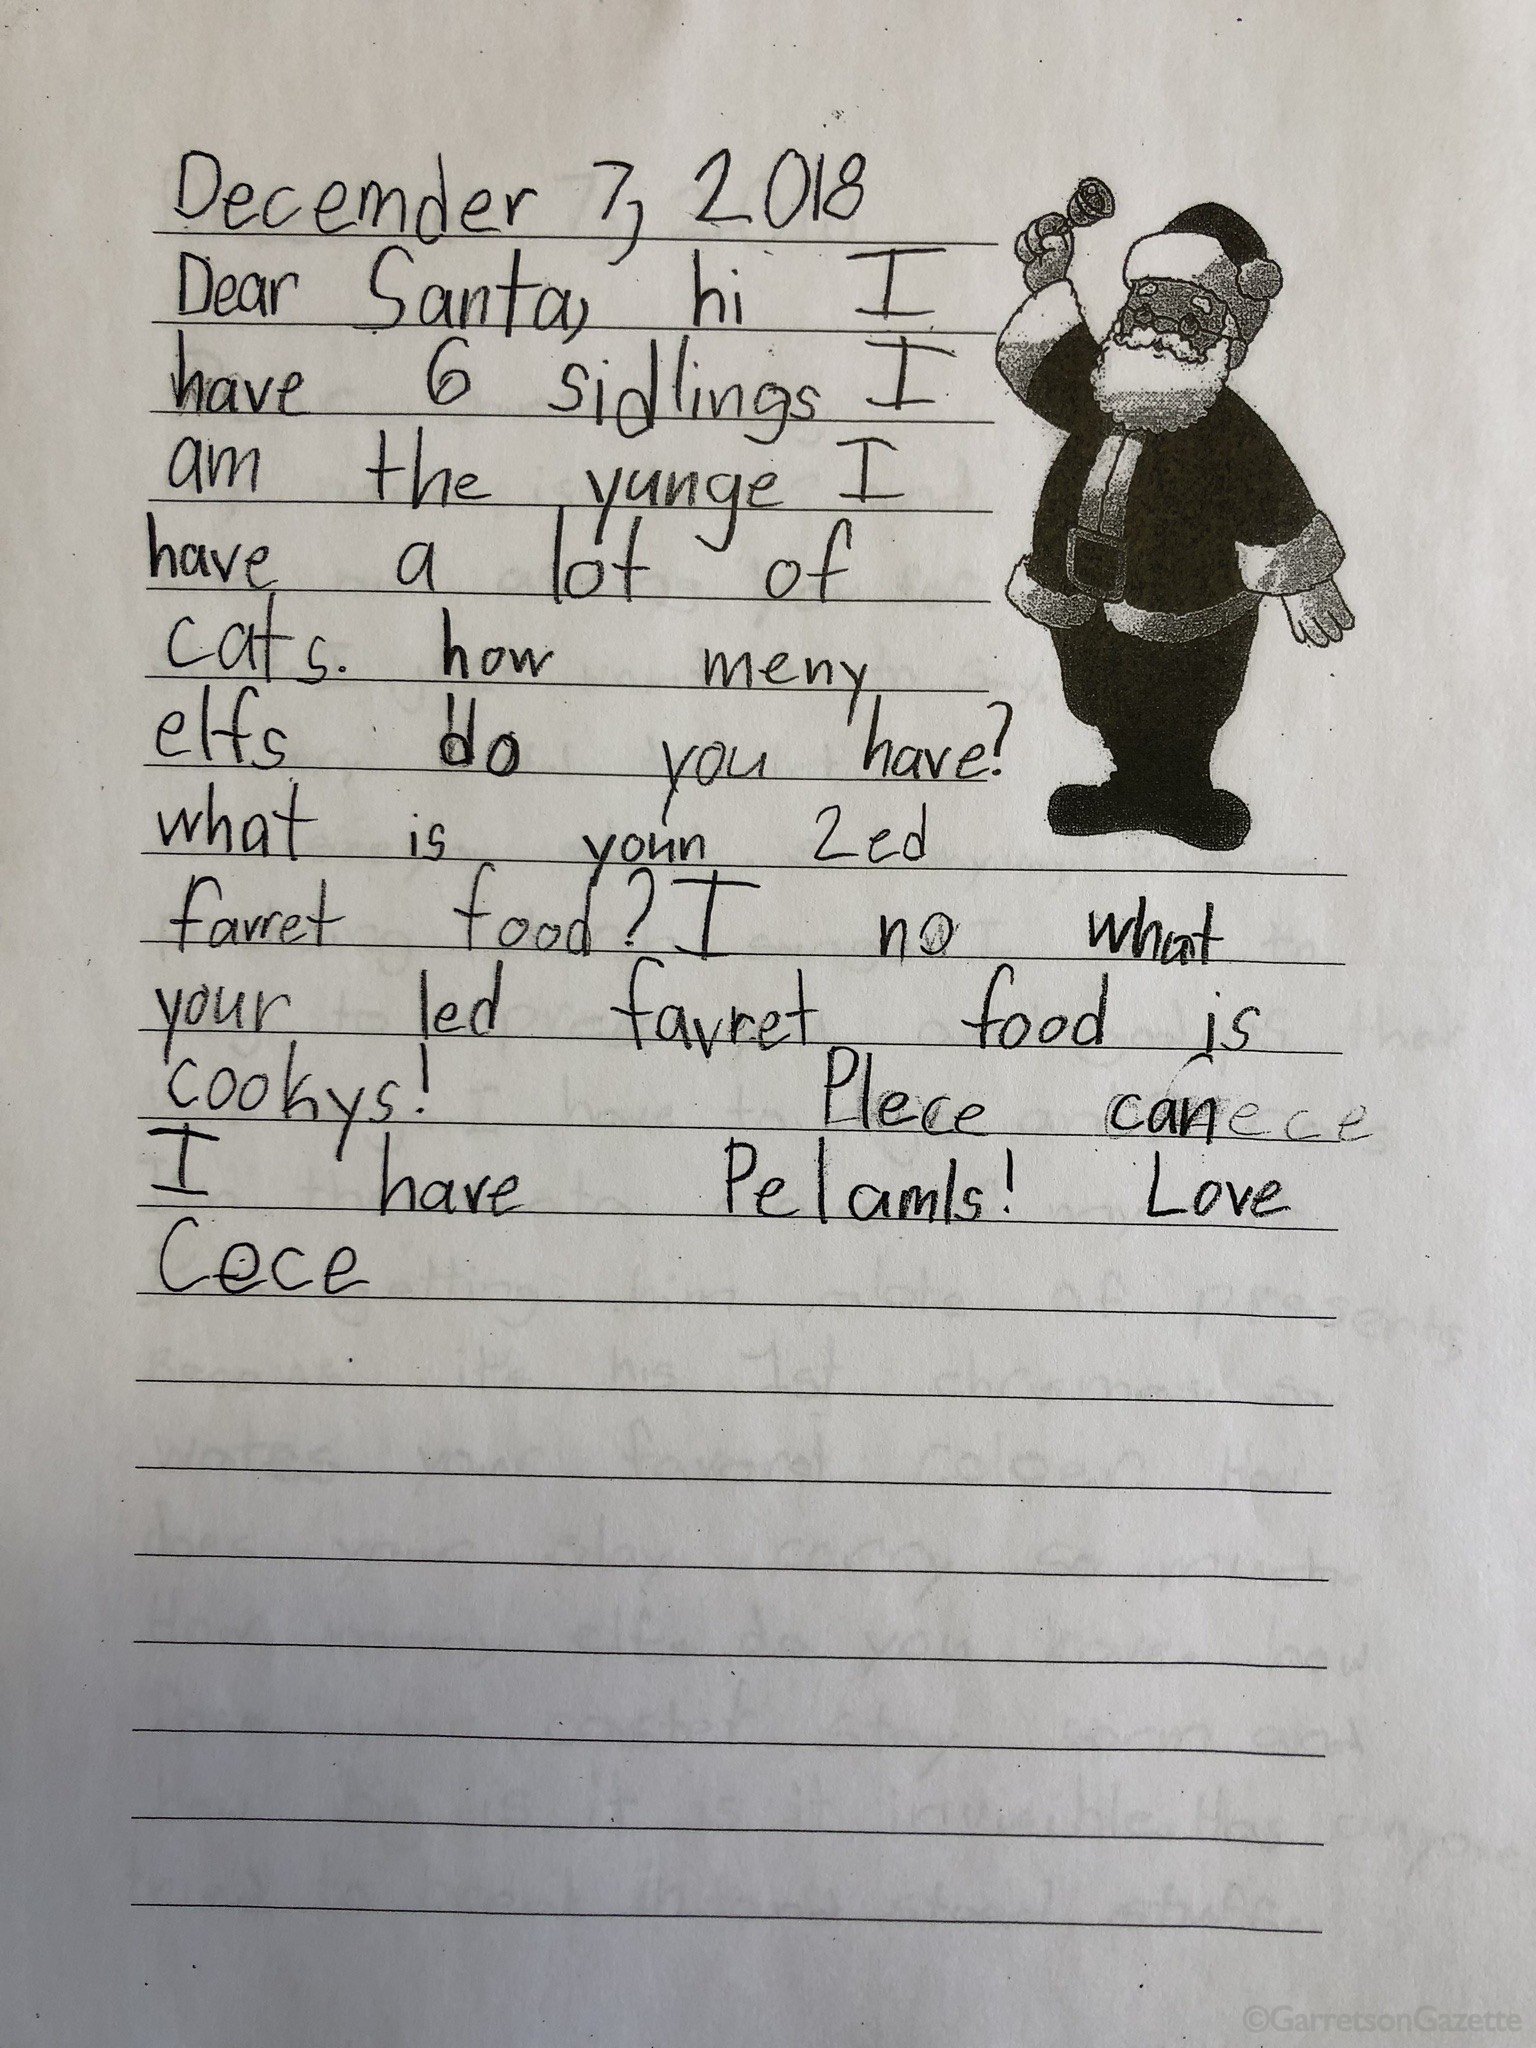 Decemder 7, 2018
Dear Santa, hi I
have 6 sidlings I
am the yunge I
have a lot of
cats. how meny
elfs do you have?
what is youn 2ed
favret food? I no what
your 1ed favret food is
cookys! Plece can
I have Pelamls! Love
Cece
©GarretsonGazette